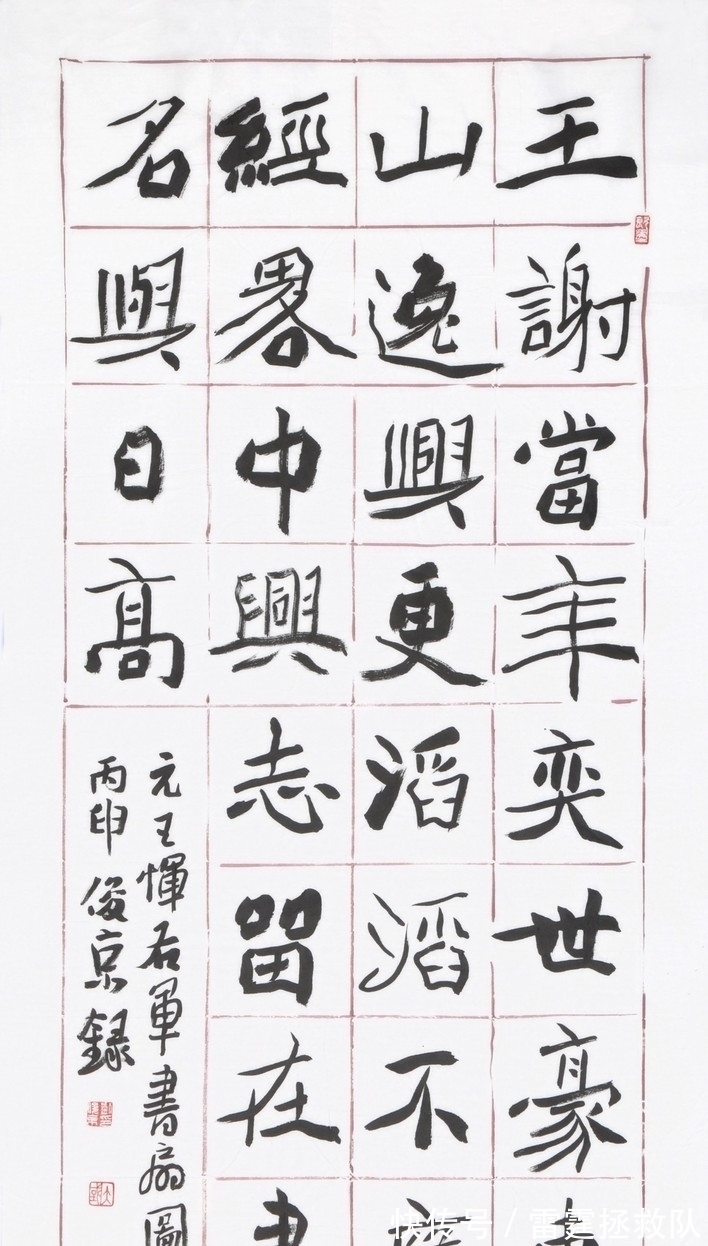 王謝當年奕世豪
山逸興更滔滔不
經畧中興志留在
名與日高
元王惲右軍書扇圖
丙申俊京錄
快传号 / 雷霆拯救队